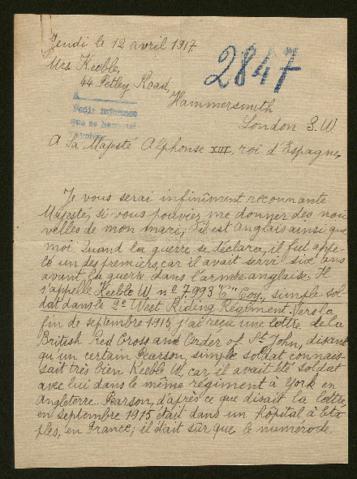 Jeudi le 12 avril 1917.
2847
Mrs Keeble,
44 Petley Road,
Hammersmith
London S.W.
A Sa Majesté Alphonse XIII, roi d'Espagne,
Je vous serai infiniment reconnante
Majesté, si vous pouviez me donner des nou
velles de mon mari, il est anglais ainsi que
moi. Quand la guerre se déclara, il fut appe
lé un des premiers car il avait servi six ans
avant la guerre dans l'armée anglaise. Il
s'appelle Keeble W. nº 7993 "C" Coy., simple sol
dat dans le 2e West Riding Regiment. Vers la
fin de septembre 1915 j'ai reçu une lettre de la
British Red Cross and Order of St John, disant
qu'un certain Pearson, simple soldat connais
sait très bien Keeble W. car il avait été soldat
avec lui dans le même régiment à York en
Angleterre. Parson, d'après ce que disait la lettre,
en septembre 1915 était dans un hôpital à Eta
ples, en France; il était sûr que le numéro de